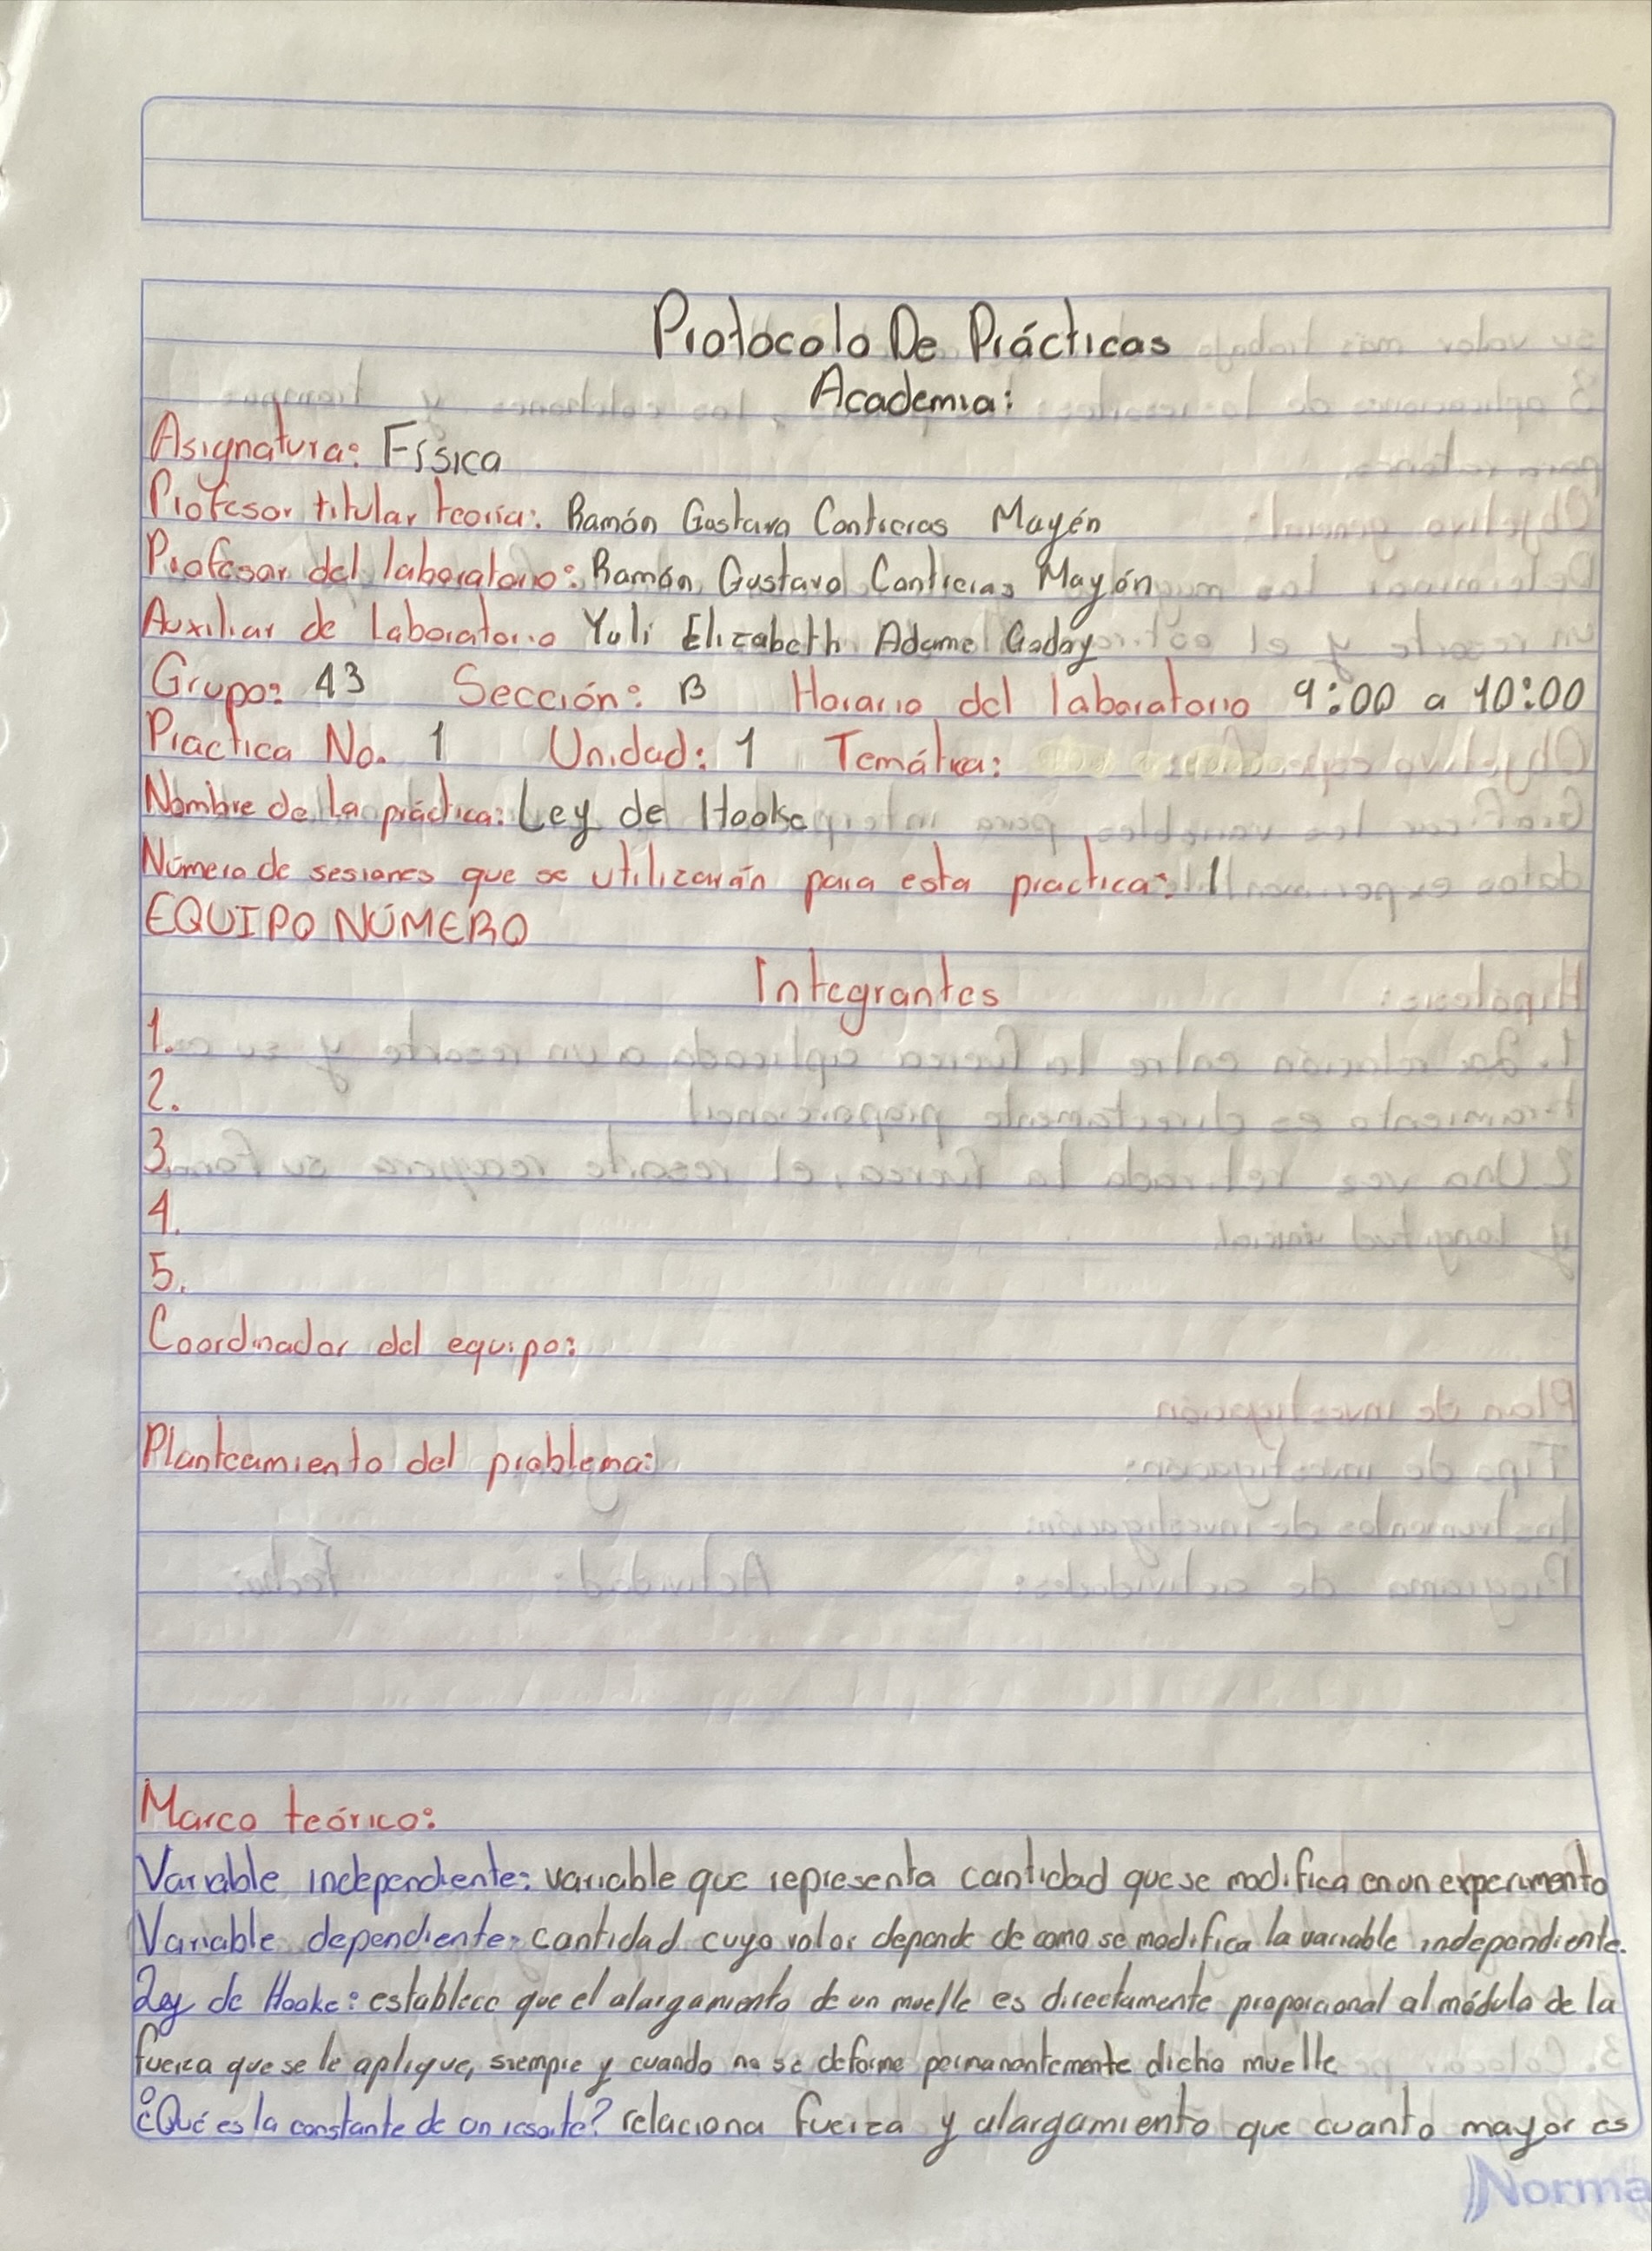 Protocolo De Prácticas
Academia:
Asignatura: Física
Profesor titular teoría: Ramón Gustavo Contreras Mayén
Profesor del laboratorio: Ramón Gustavo Contreras Mayén
Auxiliar de Laboratorio Yuli Elizabeth Adame Godoy
Grupo: 43 Sección: B Horario del laboratorio 9:00 a 10:00
Practica No. 1 Unidad: 1 Temática:
Nombre de La práctica: Ley de Hooke
Número de sesiones que se utilizarán para esta practica: 1
EQUIPO NÚMERO
Integrantes
1.
2.
3.
4.
5.
Coordinador del equipo:
Planteamiento del problema:
Marco teórico:
Variable independiente: variable que representa cantidad que se modifica en un experimento
Variable dependiente: cantidad cuyo valor depende de como se modifica la variable independiente.
Ley de Hooke: establece que el alargamiento de un muelle es directamente proporcional al módulo de la
fuerza que se le aplique, siempre y cuando no se deforme permanentemente dicho muelle
¿Qué es la constante de un resorte? relaciona fuerza y alargamiento que cuanto mayor es
Norma